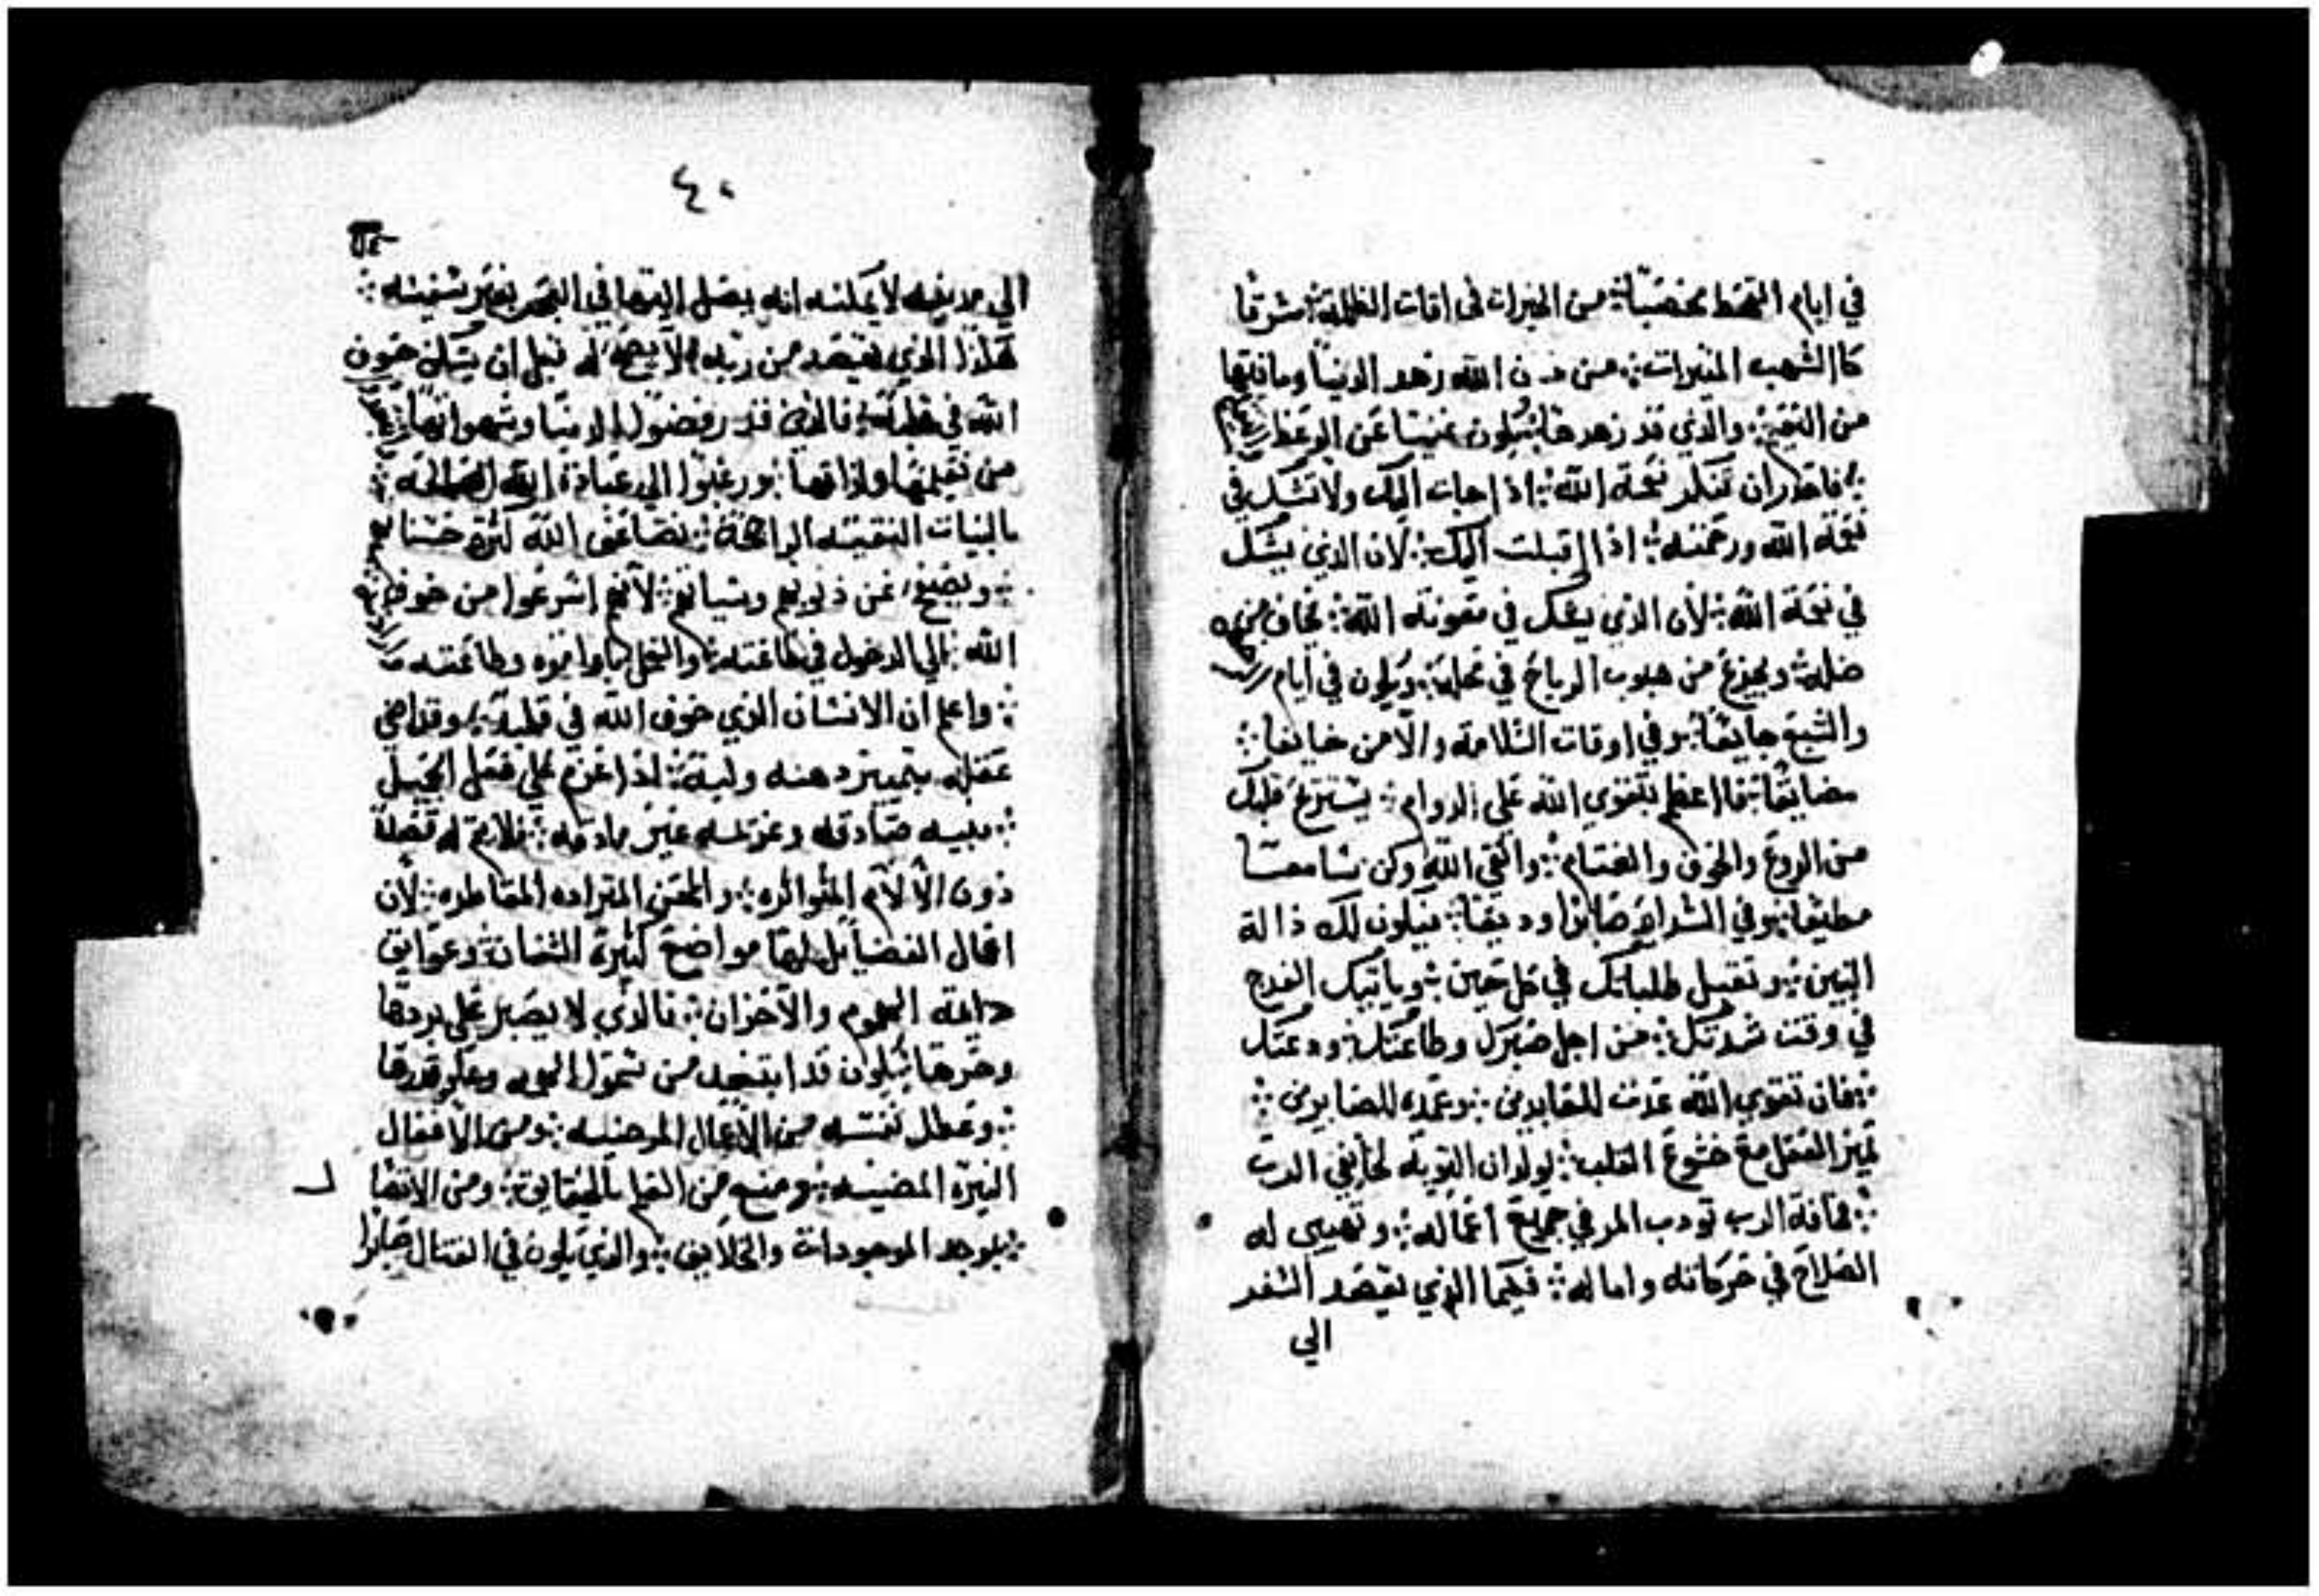 في ايام القحط مخصبًا؛ من الخيرات في اقات الظلمة؛ مشرقا
كالشهب المنيرات؛ من خوف الله زهد الدنيا وما فيها
من القنية؛ والذي قد زهدها يكون غنيا عن الوعظ
؛ فاحذر ان تنكر نعمة الله؛ اذا جات اليك ولا تشك في
نعمة الله ورحمته؛ اذا اقبلت اليك؛ لان الذي يشك
في نعمة الله؛ لان الذي يشك في معونة الله؛ يخاف من
ظله؛ ويجزع من هبوب الرياح في محله؛ ويكون في ايام
والشبع جايعًا؛ وفي اوقات السلامة والامن خايفا؛
مضايقًا؛ فاعظم بتقوي الله علي الدوام؛ يستريح قلبك
من الروع والخوف والغتام؛ واتقي الله وكن سامعًا
مطيعًا؛ وفي الشدايد صابرا وديعًا؛ فيكون لك ذالة
البنين؛ وتقبل طلباتك في كل حين؛ وياتيك الفرج
في وقت شدتك؛ من اجل صبرك وطاعتك؛ ودعتك
؛ فان تقوي الله عدت للعابدين؛ وعمده للصابرين؛
تميز العقل مع خشوع القلب؛ يولدان التوبة لخايفي الرب
؛ مخافة الرب تودب المر في جميع اعماله؛ وتهيي له
الصلاح في حركاته واماله؛ فكما الذي يقصد السفر
الي
٤٠
الي مدينه لا يمكنه انه يصل اليها في البحر بغير سفينه؛
هكذا الذي يقصد من ربه قبل ان يسكن خوف
الله في قلبه؛ فالذين قد رفضوا الدنيا وشهواتها؛
من نعيمها ولذاتها؛ ورغبوا الي عبادة الله الصالحه؛
بالنيات النقيه الراجحة؛ يضاعف الله كثرة حسنا
؛ ويصفح عن ذنوبهم وسياتهم؛ لانهم اسرعوا من خوف
الله؛ الي الدخول في طاعته؛ والعمل باوامره وطاعته
؛ واعلم ان الانسان الذي خوف الله في قلبه؛ وقد اضي
عقله بتمييز دهنه ولبه؛ اذا عزم علي فعل الجميل
؛ بنيه صادقه وعزيمه غير مادقه؛ فلا يتم له فضلة
دون الالام المتواتره؛ والمحن المتراده المتقاطره؛ لان
افعال الفضايل لها مواضع كثيرة الثخانة؛ وعوايق
دايمة الهموم والاحزان؛ فالذي لا يصبر علي بردها
وحرها يكون قد ابتعد من سمو المجد وعلو قدرها
؛ وعطل نفسه من الاعمال المرضيه؛ ومن الافعال
النيرة المضييه؛ ومنع من العلم بالحقايق؛ ومن الاتضا
؛ بوجد الموجودات والخلايق؛ والذي يكون في القتال صابرا